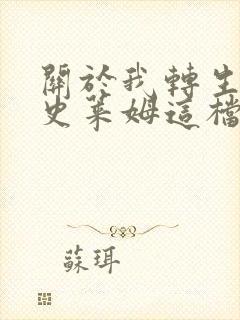 關於我轉生
史萊姆這檔
蘇珥